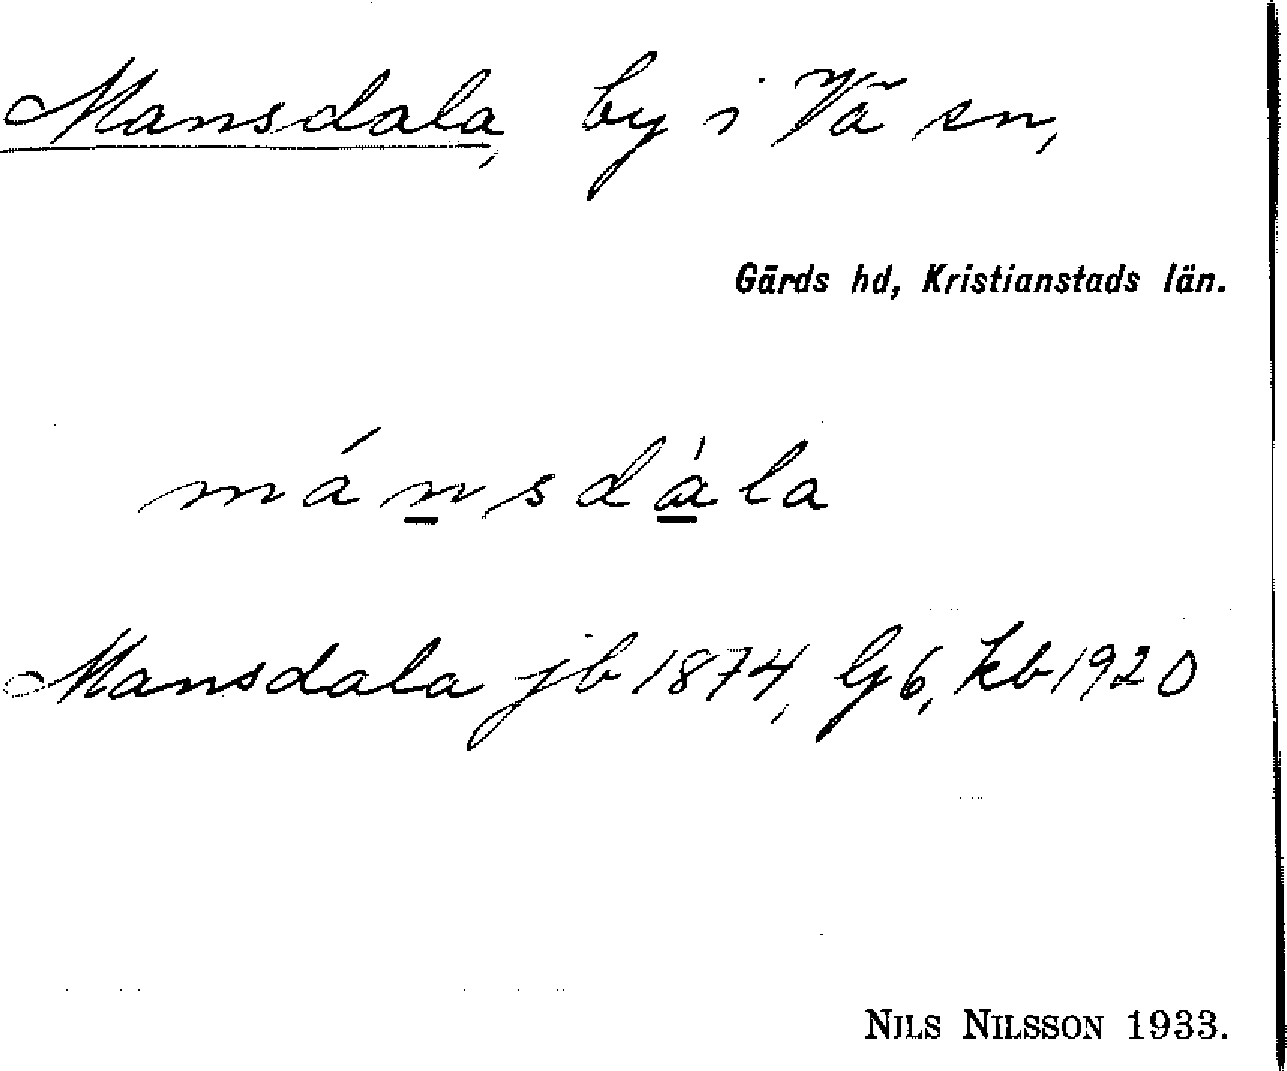 Mansdala, by i Vä sn,
Gärds hd, Kristianstads län.
mánsdàla
Mansdala jb 1874, G6, kb 1920
NILS NILSSON 1933.